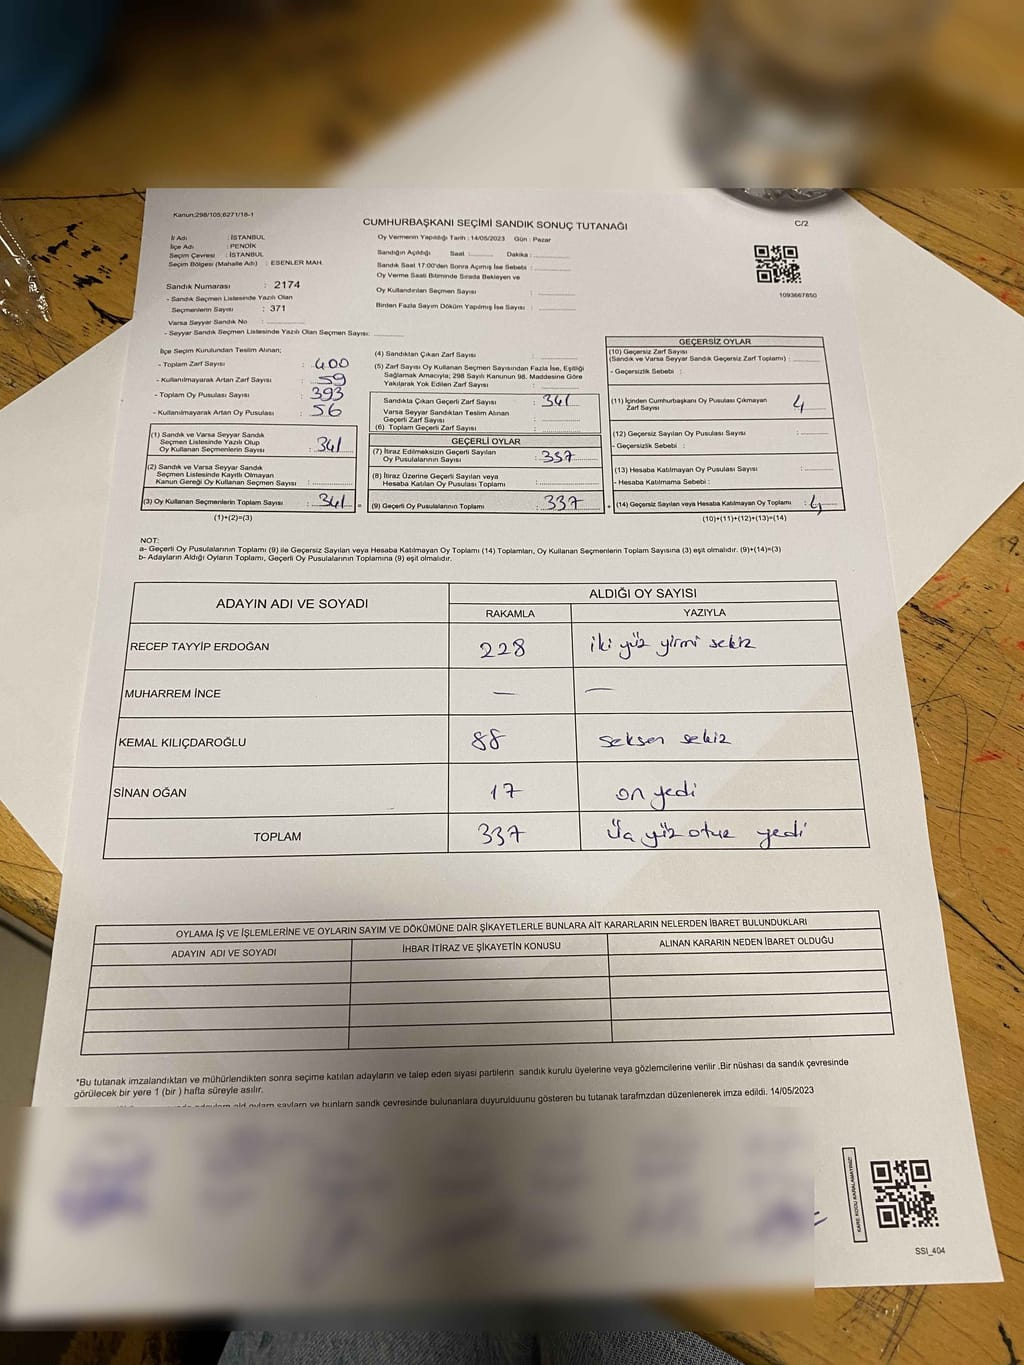 Kanun:298/105;6271/18-1
CUMHURBAŞKANI SEÇİMİ SANDIK SONUÇ TUTANAĞI
C/2
İl Adı : İSTANBUL
İlçe Adı : PENDİK
Seçim Çevresi : İSTANBUL
Seçim Bölgesi (Mahalle Adı) : ESENLER MAH.
Sandık Numarası : 2174
- Sandık Seçmen Listesinde Yazılı Olan
Seçmenlerin Sayısı : 371
Varsa Seyyar Sandık No :
- Seyyar Sandık Seçmen Listesinde Yazılı Olan Seçmen Sayısı:
Oy Vermenin Yapıldığı Tarih : 14/05/2023 Gün : Pazar
Sandığın Açıldığı Saat : Dakika :
Sandık Saat 17:00'den Sonra Açımış İse Sebebi :
Oy Verme Saati Bitiminde Sırada Bekleyen ve
Oy Kullandırılan Seçmen Sayısı :
Birden Fazla Sayım Döküm Yapılmış İse Sayısı :
1093667850
İlçe Seçim Kurulundan Teslim Alınan;
- Toplam Zarf Sayısı : 400
- Kullanılmayarak Artan Zarf Sayısı : 59
- Toplam Oy Pusulası Sayısı : 393
- Kullanılmayarak Artan Oy Pusulası : 56
(1) Sandık ve Varsa Seyyar Sandık
Seçmen Listesinde Yazılı Olup
Oy Kullanan Seçmenlerin Sayısı : 341
(2) Sandık ve Varsa Seyyar Sandık
Seçmen Listesinde Kayıtlı Olmayan
Kanun Gereği Oy Kullanan Seçmen Sayısı :
(3) Oy Kullanan Seçmenlerin Toplam Sayısı : 341 =
(1)+(2)=(3)
(4) Sandıktan Çıkan Zarf Sayısı :
(5) Zarf Sayısı Oy Kullanan Seçmen Sayısından Fazla İse, Eşitliği
Sağlamak Amacıyla; 298 Sayılı Kanunun 98. Maddesine Göre
Yakılarak Yok Edilen Zarf Sayısı :
Sandıkta Çıkan Geçerli Zarf Sayısı : 341
Varsa Seyyar Sandıktan Teslim Alınan
Geçerli Zarf Sayısı :
(6) Toplam Geçerli Zarf Sayısı :
GEÇERLİ OYLAR
(7) İtiraz Edilmeksizin Geçerli Sayılan
Oy Pusulalarının Sayısı : 337
(8) İtiraz Üzerine Geçerli Sayılan veya
Hesaba Katılan Oy Pusulası Toplamı :
(9) Geçerli Oy Pusulalarının Toplamı : 337 +
GEÇERSİZ OYLAR
(10) Geçersiz Zarf Sayısı
(Sandık ve Varsa Seyyar Sandık Geçersiz Zarf Toplamı) :
- Geçersizlik Sebebi :
(11) İçinden Cumhurbaşkanı Oy Pusulası Çıkmayan
Zarf Sayısı 4
(12) Geçersiz Sayılan Oy Pusulası Sayısı :
- Geçersizlik Sebebi :
(13) Hesaba Katılmayan Oy Pusulası Sayısı :
- Hesaba Katılmama Sebebi :
(14) Geçersiz Sayılan veya Hesaba Katılmayan Oy Toplamı : 4
(10)+(11)+(12)+(13)=(14)
NOT:
a- Geçerli Oy Pusulalarının Toplamı (9) ile Geçersiz Sayılan veya Hesaba Katılmayan Oy Toplamı (14) Toplamları, Oy Kullanan Seçmenlerin Toplam Sayısına (3) eşit olmalıdır. (9)+(14)=(3)
b- Adayların Aldığı Oyların Toplamı, Geçerli Oy Pusulalarının Toplamına (9) eşit olmalıdır.
ADAYIN ADI VE SOYADI
ALDIĞI OY SAYISI
RAKAMLA YAZIYLA
RECEP TAYYİP ERDOĞAN 228 iki yüz yirmi sekiz
MUHARREM İNCE — —
KEMAL KILIÇDAROĞLU 88 seksen sekiz
SİNAN OĞAN 17 on yedi
TOPLAM 337 Üç yüz otuz yedi
OYLAMA İŞ VE İŞLEMLERİNE VE OYLARIN SAYIM VE DÖKÜMÜNE DAİR ŞİKAYETLERLE BUNLARA AİT KARARLARIN NELERDEN İBARET BULUNDUKLARI
ADAYIN ADI VE SOYADI İHBAR İTİRAZ VE ŞİKAYETİN KONUSU ALINAN KARARIN NEDEN İBARET OLDUĞU
*Bu tutanak imzalandıktan ve mühürlendikten sonra seçime katılan adayların ve talep eden siyasi partilerin sandık kurulu üyelerine veya gözlemcilerine verilir .Bir nüshası da sandık çevresinde
görülecek bir yere 1 (bir ) hafta süreyle asılır.
oyların sayların ve bunların sandk çevresinde bulunanlara duyurulduunu gösteren bu tutanak tarafmzdan düzenlenerek imza edildi. 14/05/2023
KARE KODU KARALAMAYINIZ!
SSI_404